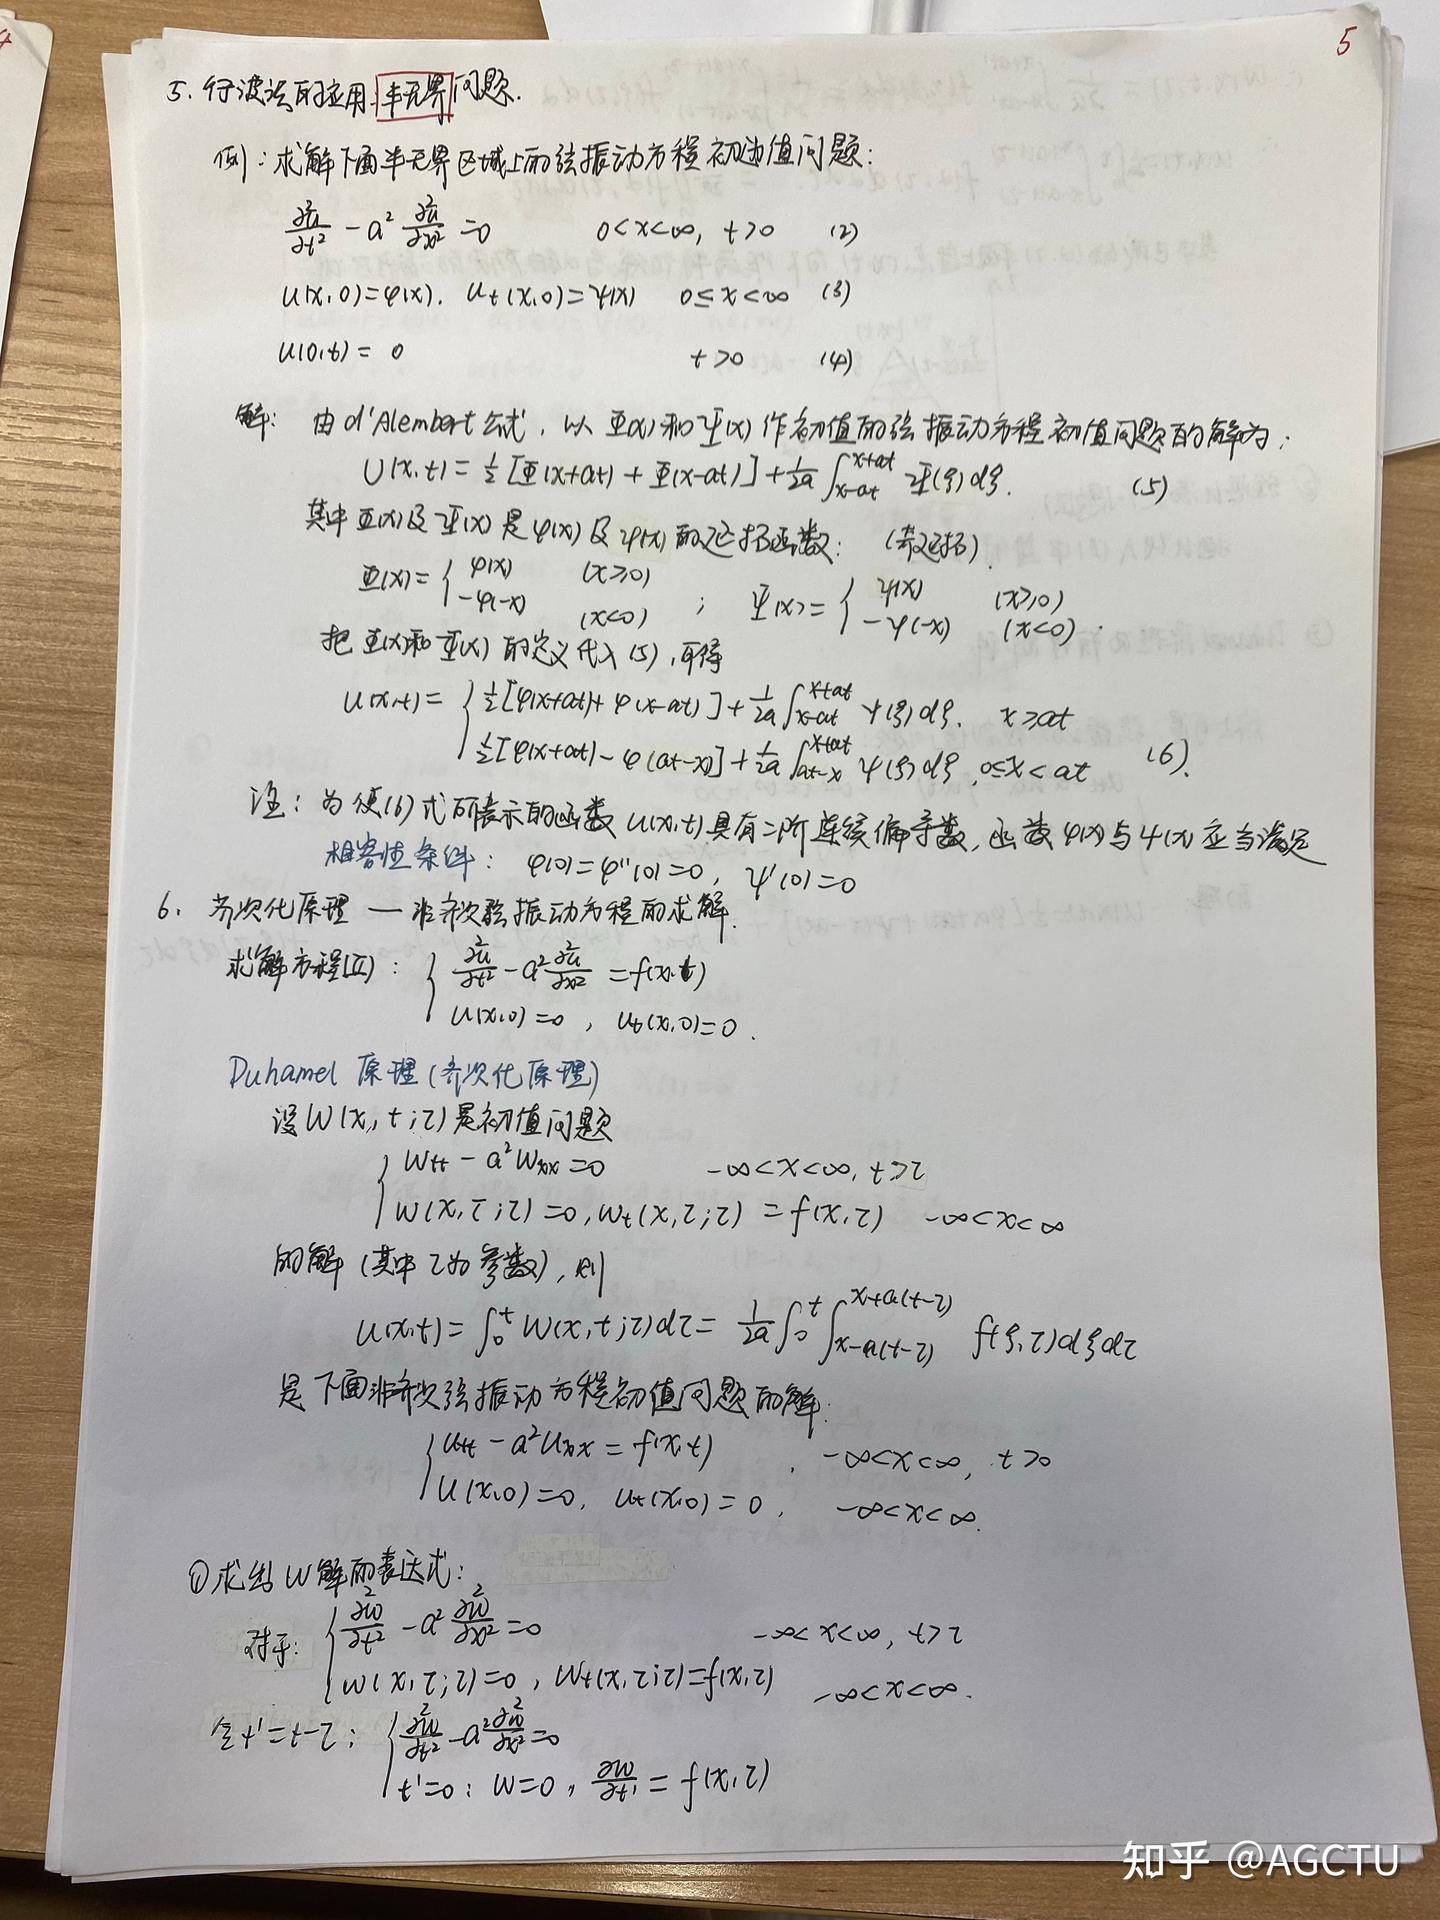 5
5. 行波法的应用. 半无界问题.
例: 求解下面半无界区域上的弦振动方程初边值问题:
∂²u/∂t² - a² ∂²u/∂x² = 0 0<x<∞, t>0 (2)
u(x,0)=φ(x), u_t(x,0)=ψ(x) 0≤x<∞ (3)
u(0,t)=0 t>0 (4)
解: 由d'Alembert公式, 以Φ(x)和Ψ(x)作初值的弦振动方程初值问题的解为:
U(x,t) = ½[Φ(x+at)+Φ(x-at)] + 1/2a ∫_{x-at}^{x+at} Ψ(ξ)dξ. (5)
其中Φ(x)及Ψ(x)是φ(x)及ψ(x)的延拓函数: (奇延拓).
Φ(x) = { φ(x) (x≥0) ; -φ(-x) (x<0) ; Ψ(x) = { ψ(x) (x≥0) ; -ψ(-x) (x<0).
把Φ(x)和Ψ(x)的定义代入(5), 可得
u(x,t) = { ½[φ(x+at)+φ(x-at)] + 1/2a ∫_{x-at}^{x+at} ψ(ξ)dξ. x≥at
½[φ(x+at)-φ(at-x)] + 1/2a ∫_{at-x}^{x+at} ψ(ξ)dξ, 0≤x<at (6).
注: 为使(6)式所表示的函数u(x,t)具有二阶连续偏导数, 函数φ(x)与ψ(x)应当满足
相容性条件: φ(0)=φ''(0)=0, ψ'(0)=0
6. 齐次化原理 — 非齐次弦振动方程的求解.
求解方程(II): { ∂²u/∂t² - a² ∂²u/∂x² = f(x,t)
u(x,0)=0, u_t(x,0)=0.
Duhamel 原理(齐次化原理)
设W(x,t;τ)是初值问题
{ W_tt - a²W_xx = 0 -∞<x<∞, t>τ
W(x,τ;τ)=0, W_t(x,τ;τ) = f(x,τ) -∞<x<∞
的解(其中τ为参数), 则
u(x,t) = ∫_0^t W(x,t;τ)dτ = 1/2a ∫_0^t ∫_{x-a(t-τ)}^{x+a(t-τ)} f(ξ,τ)dξdτ
是下面非齐次弦振动方程初值问题的解:
{ u_tt - a²u_xx = f(x,t) , -∞<x<∞, t>0
u(x,0)=0, u_t(x,0)=0, -∞<x<∞.
① 求出W解的表达式:
对于: { ∂²w/∂t² - a² ∂²w/∂x² = 0 -∞<x<∞, t>τ
w(x,τ;τ)=0, W_t(x,τ;τ)=f(x,τ) -∞<x<∞.
令t'=t-τ: { ∂²w/∂t² - a² ∂²w/∂x² = 0
t'=0: W=0, ∂w/∂t' = f(x,τ)
知乎 @AGCTU